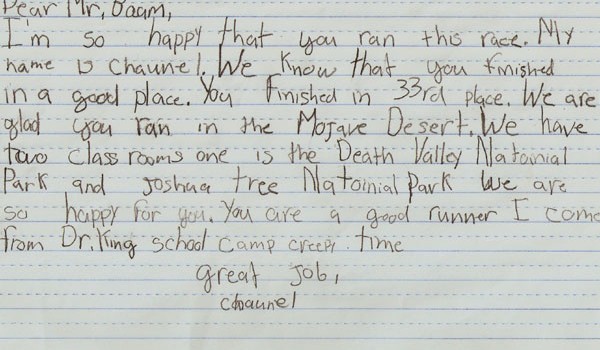 Dear Mr, Baam,
I'm so happy that you ran this race. My
name is chaunel. We know that you finished
in a good place. You finished in 33rd place. We are
glad you ran in the Mojave Desert. We have
two class rooms one is the Death Valley Natoinial
Park and Joshua tree Natoinial Park we are
so happy for you. You are a good runner I come
from Dr. King school camp creepy time
great job,
chaunel